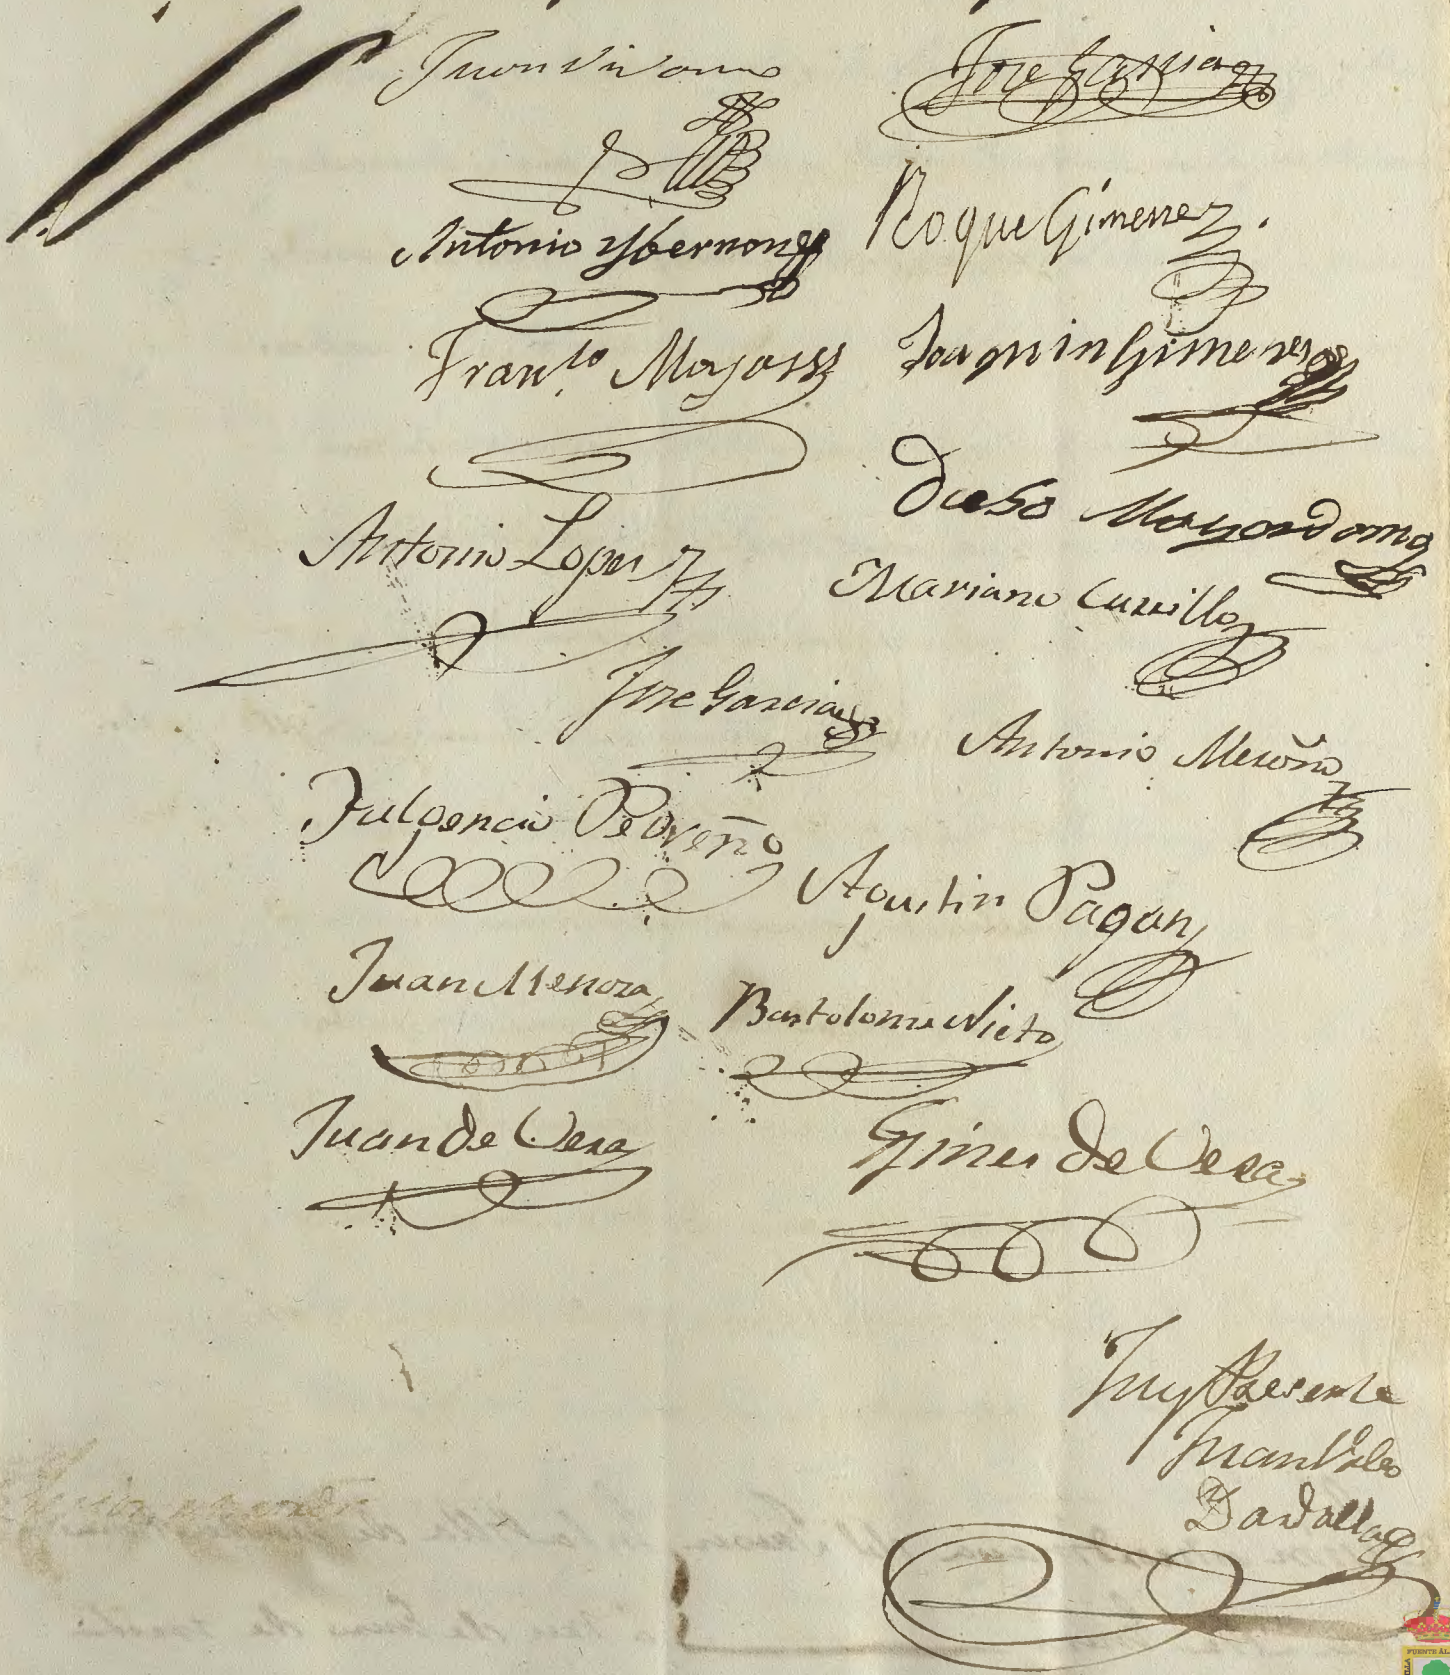 Juan Vivanco
Jose Garcia
Antonio Ybernon
Roque Gimenez.
Fran.co Mayor
Joaquin Gimenez
Diego Mayordomo
Antonio Lopez
Mariano Carrillo
Jose Garcia
Antonio Meroño
Fulgencio Pedreño
Agustin Pagan
Juan Mendoza
Bartolome Nieto
Juan de Vera
Gines de Vera
Fuy Presente
Juan Pablo
FUENTE AL